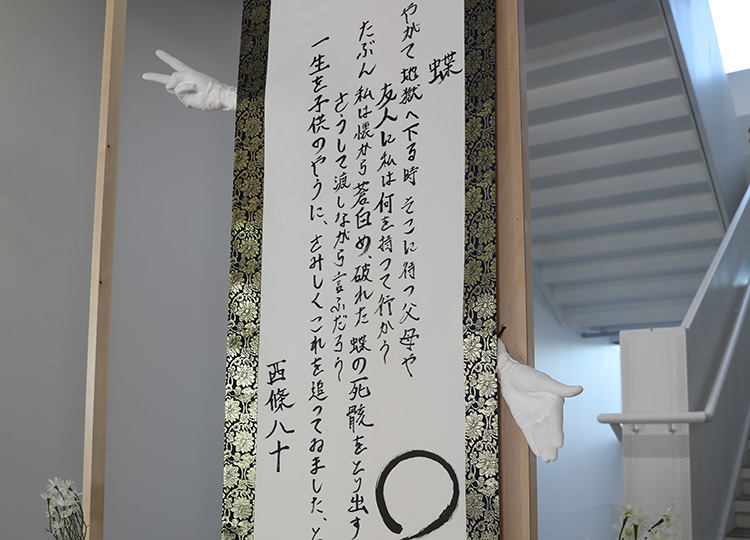 蝶
やがて地獄へ下る時 そこに待つ父母や
友人に私は何を持つて行かう
たぶん私は懐から蒼白め、破れた蝶の死骸をとり出す
さうして渡しながら言ふだらう
一生を子供のやうに、さみしくこれを追つてゐました、と
西條八十